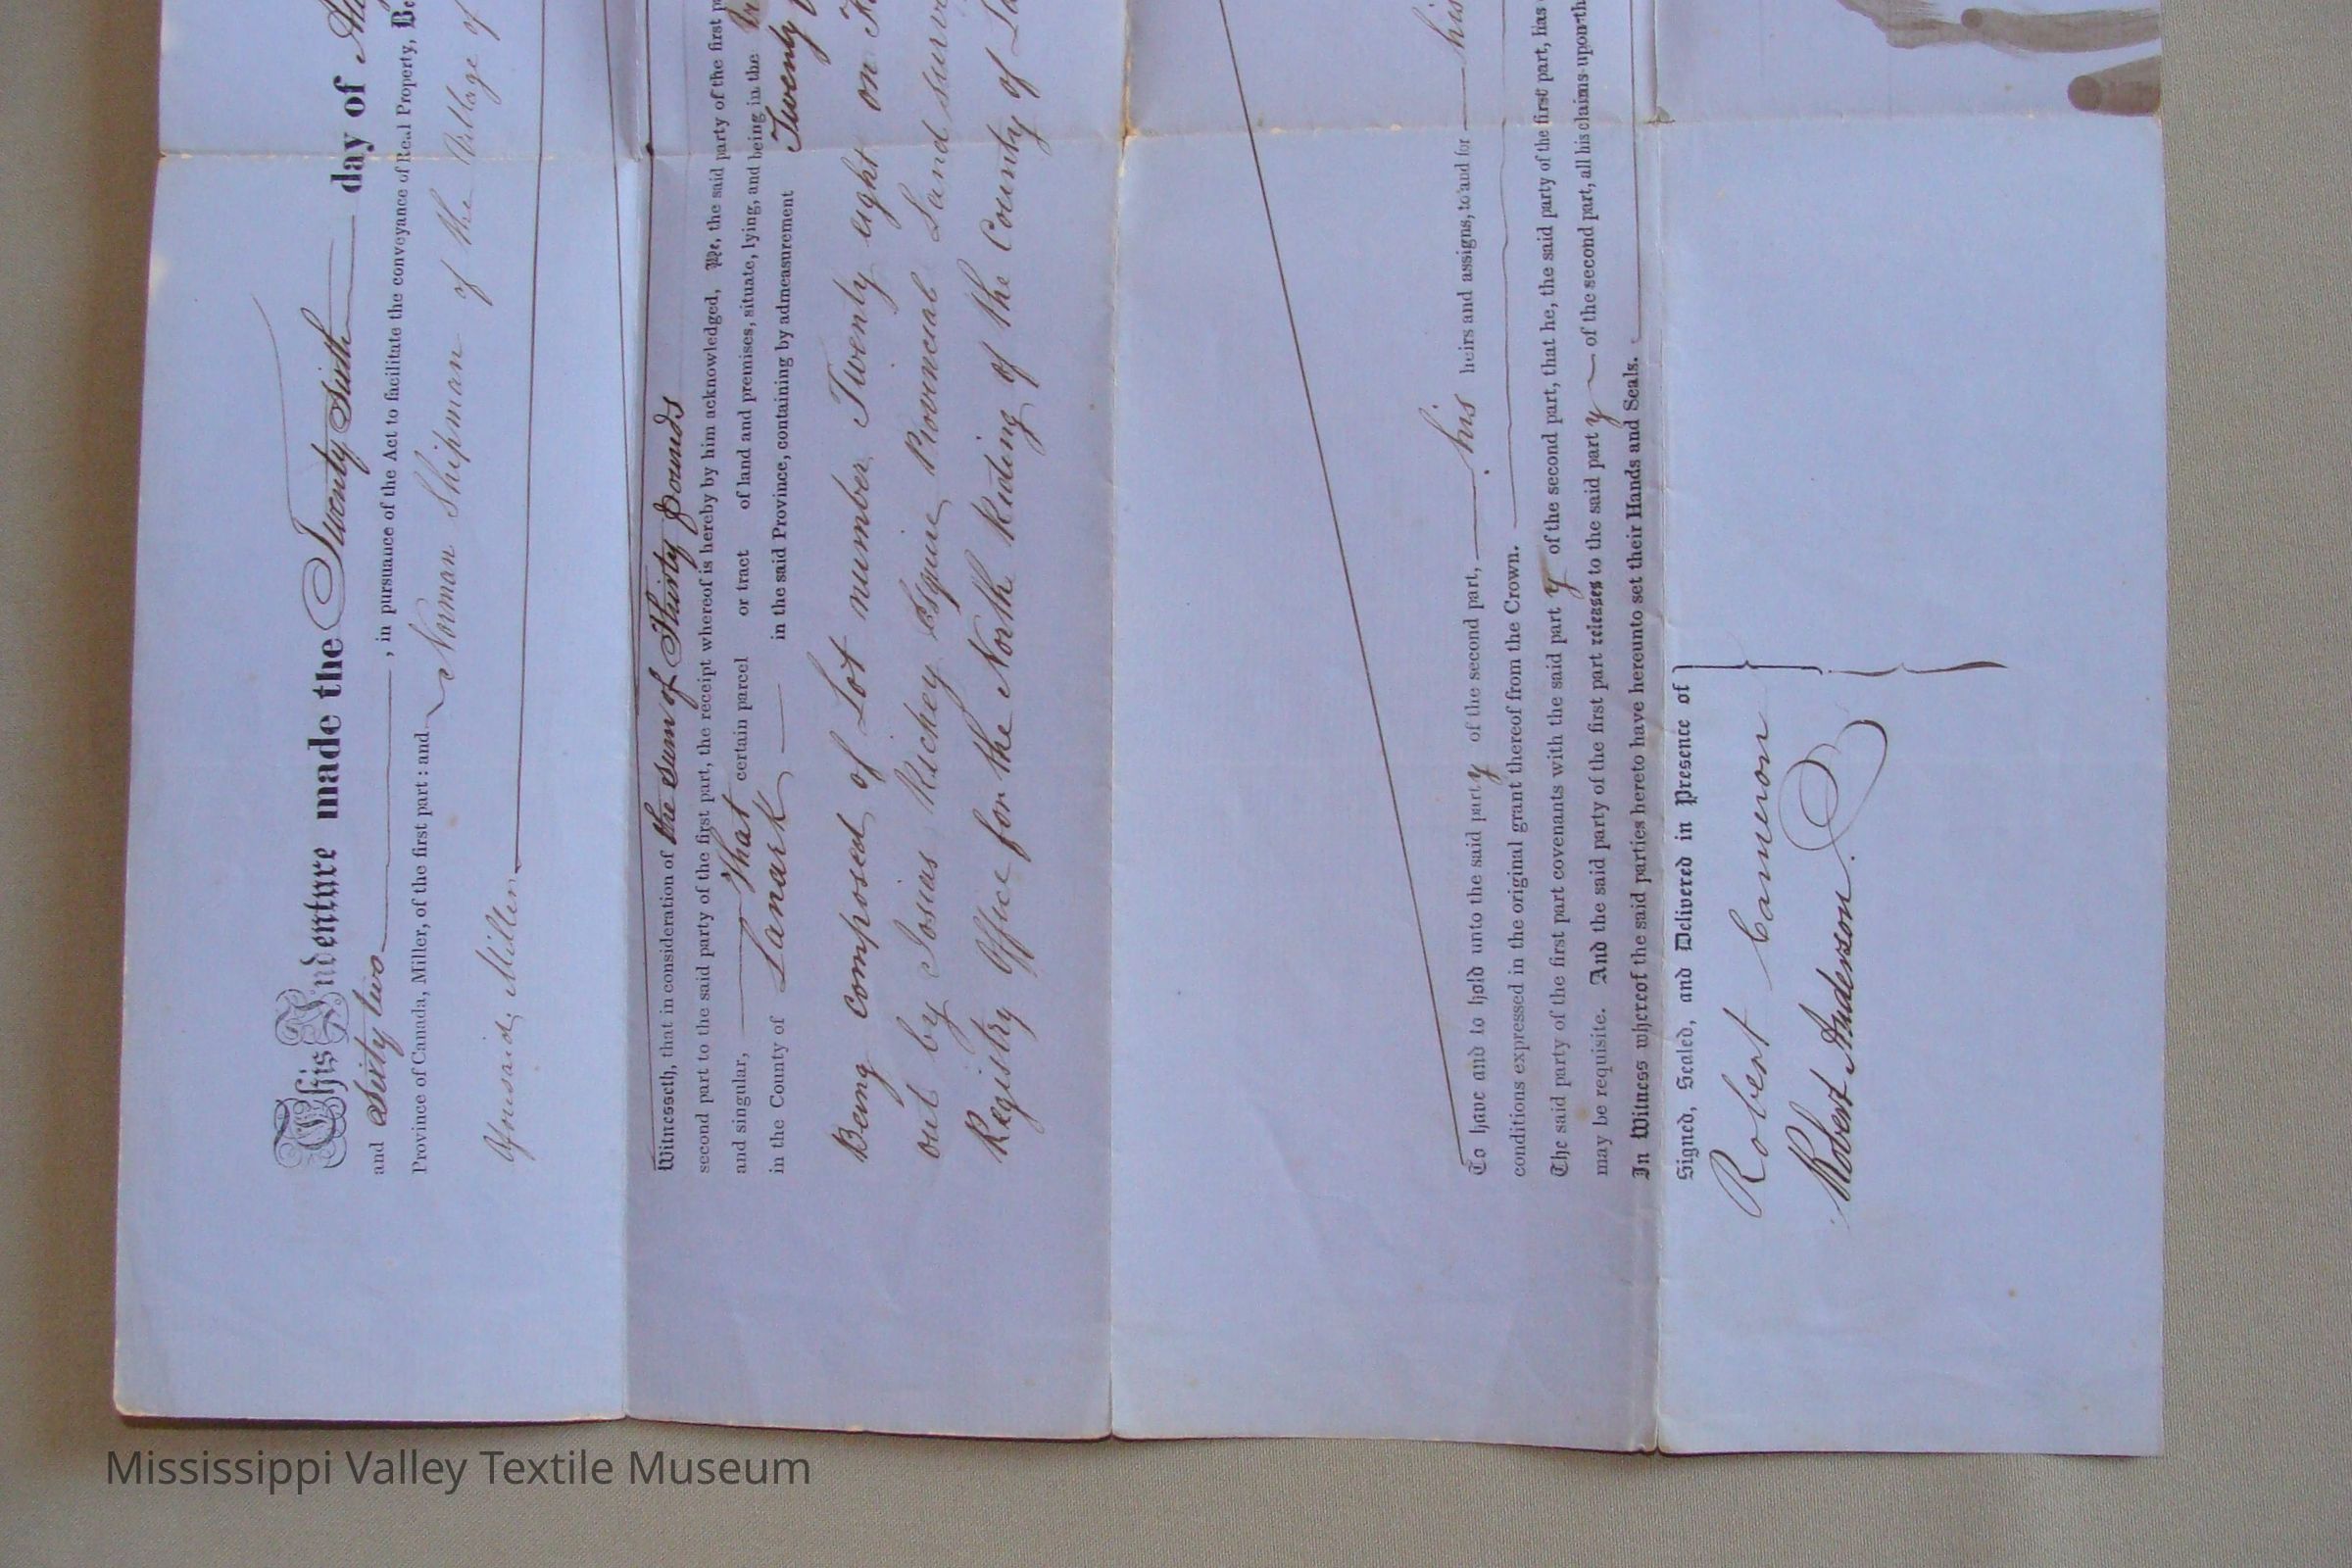 This Indenture made the Twenty Sixth day of
and Sixty two , in pursuance of the Act to facilitate the conveyance of Real Property,
Province of Canada, Miller, of the first part: and Norman Shipman of the Village of
aforesaid, Miller
Witnesseth, that in consideration of the sum of Thirty pounds
second part to the said party of the first part, the receipt whereof is hereby by him acknowledged, He, the said party of the first
and singular, That certain parcel or tract of land and premises, situate, lying, and being in the
in the County of Lanark in the said Province, containing by admeasurement Twenty
Being composed of Lot number Twenty eight on
out by Josias Richey Esquire Provincial Land
Registry Office for the North Riding of the County of
To have and to hold unto the said party of the second part, his heirs and assigns, to and for his
conditions expressed in the original grant thereof from the Crown.
The said party of the first part covenants with the said party of the second part, that he, the said party of the first part, has
may be requisite. And the said party of the first part releases to the said party of the second part, all his claims upon
In Witness whereof the said parties hereto have hereunto set their Hands and Seals.
Signed, Sealed, and Delivered in Presence of
Robert Cameron
Robert Anderson
Mississippi Valley Textile Museum